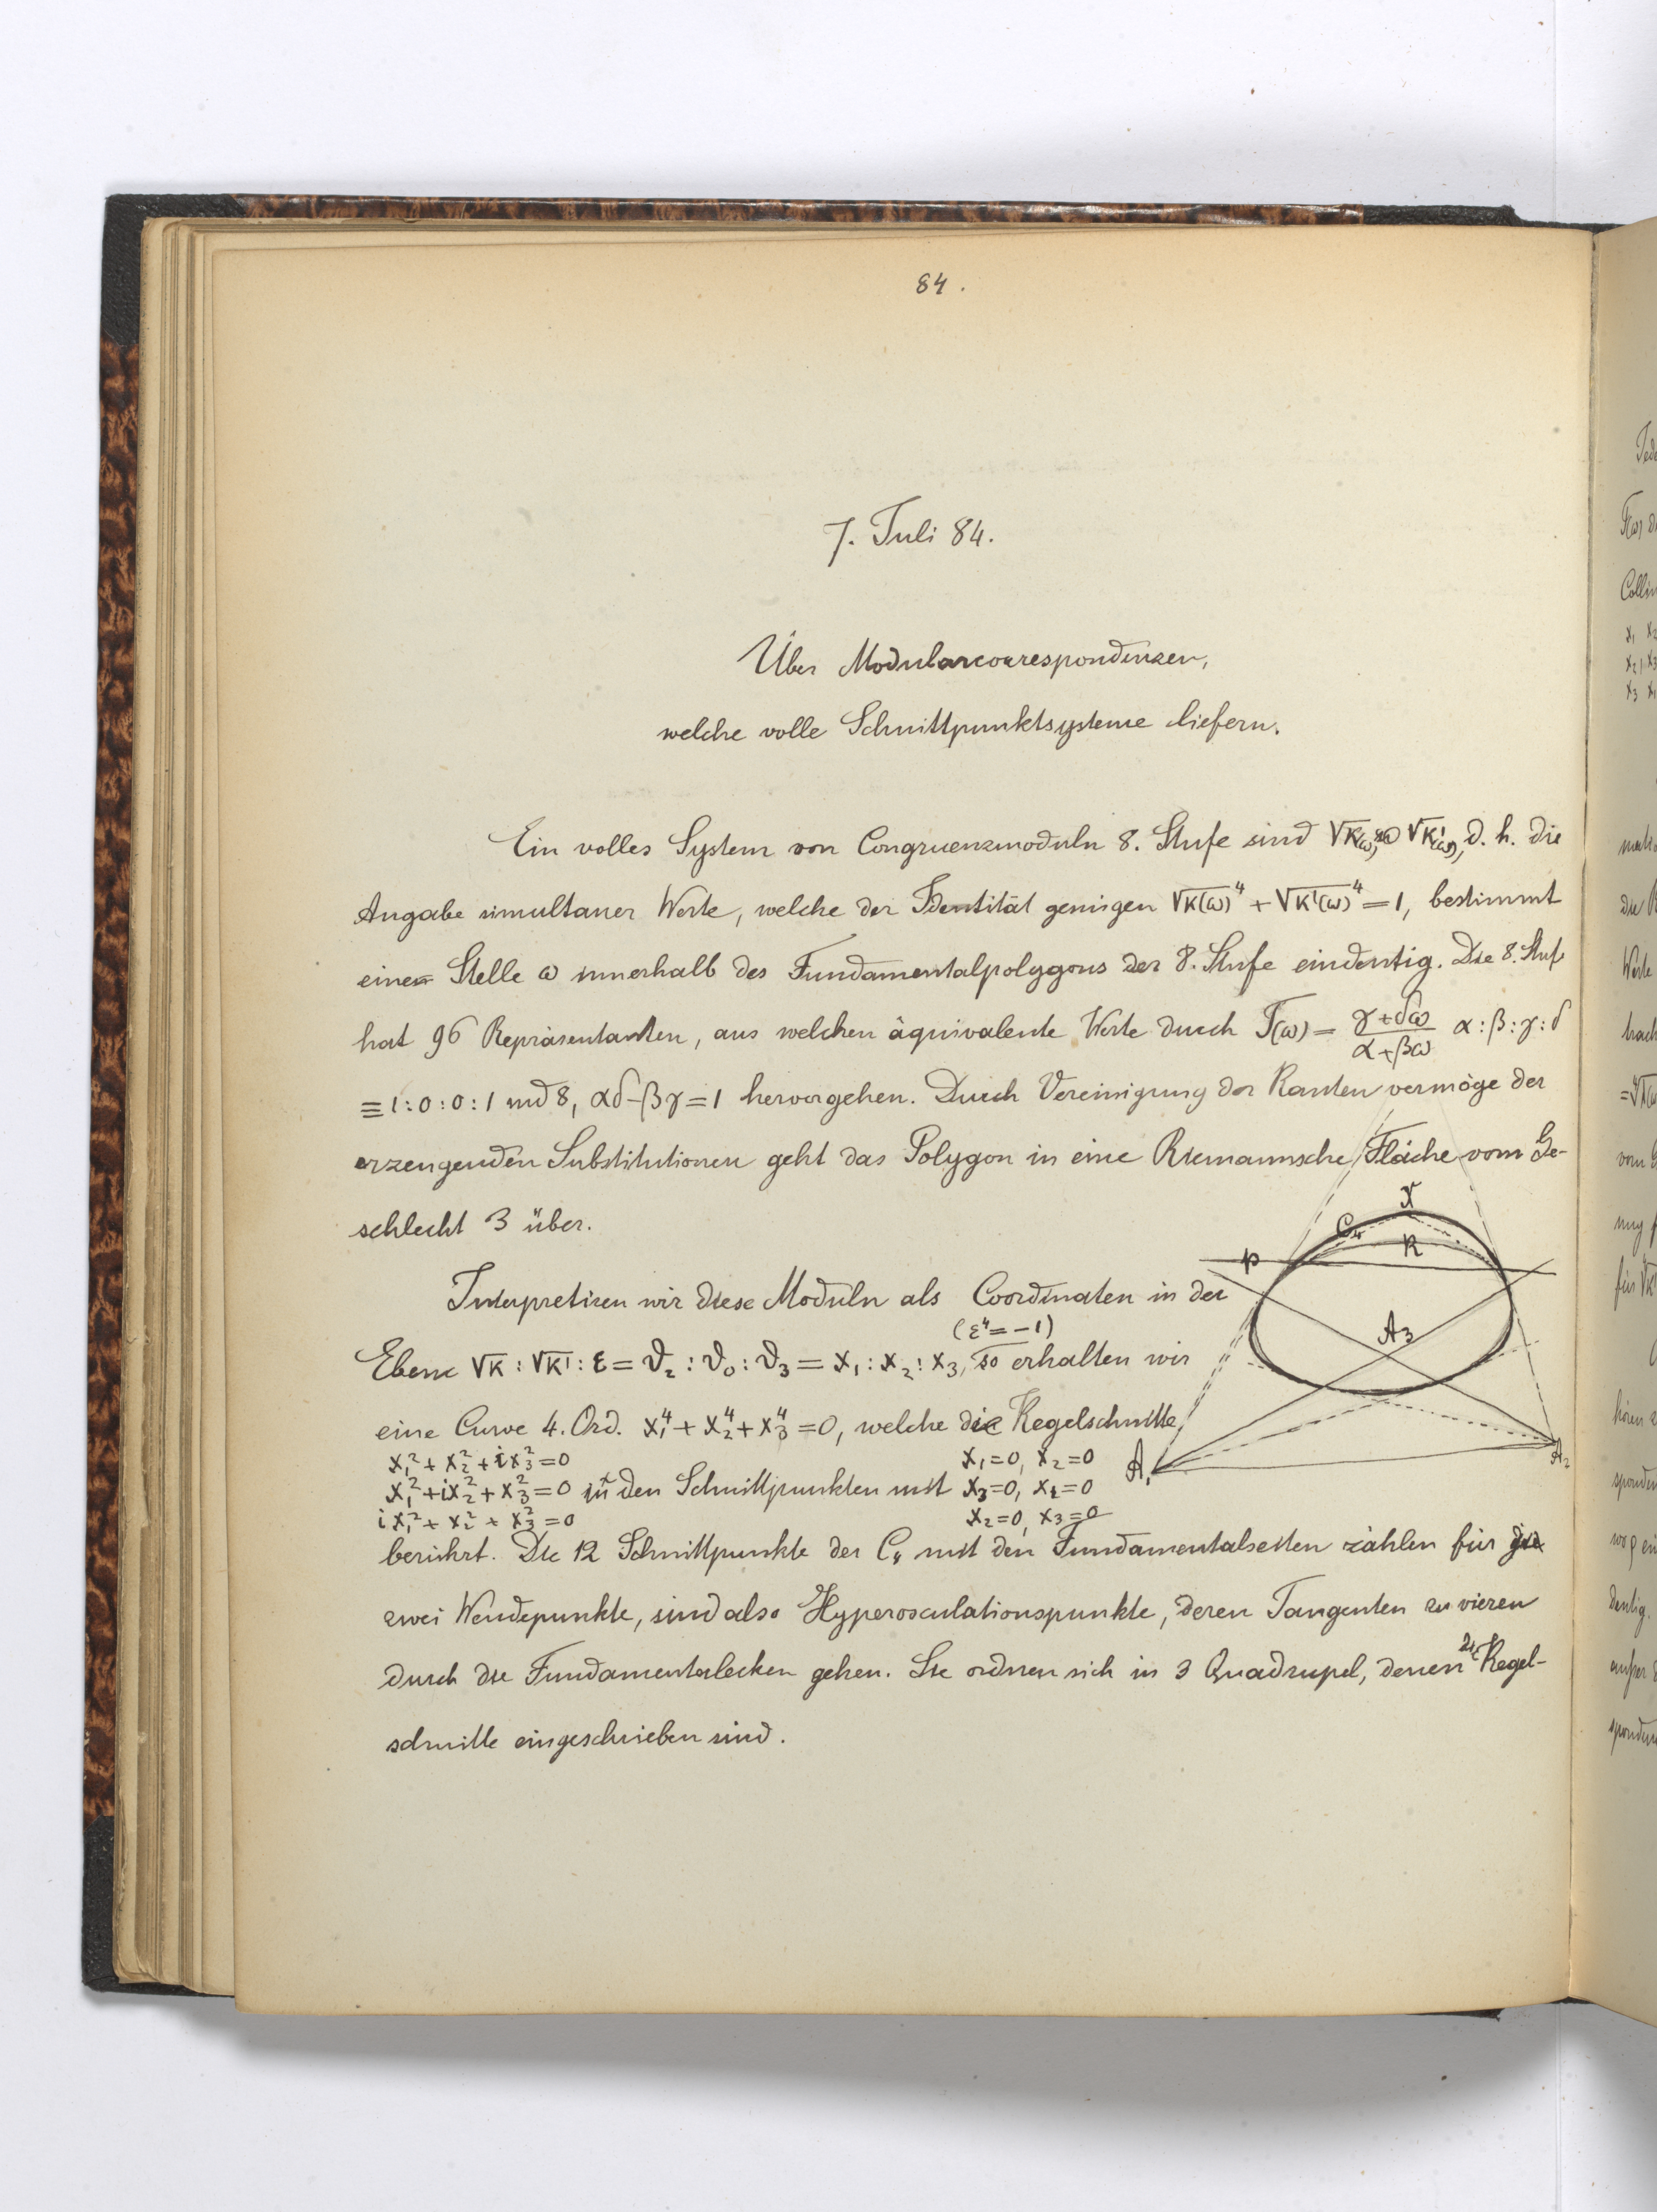 84.
7. Juli 84.
Über Modularcorrespondenzen,
welche volle Schnittpunktsysteme liefern.
Ein volles System von Congruenzmoduln 8. Stufe sind √κ(ω), √κ'(ω), d. h. die
Angabe simultaner Werte, welche der Identität genügen √κ(ω)⁴ + √κ'(ω)⁴ = 1, bestimmt
eine Stelle ω innerhalb des Fundamentalpolygons der 8. Stufe eindeutig. Die 8. Stufe
hat 96 Repräsentanten, aus welchen äquivalente Werte durch T(ω) = (γ+δω)/(α+βω) α:β:γ:δ
≡ 1:0:0:1 md 8, αδ-βγ=1 hervorgehen. Durch Vereinigung der Kanten vermöge der
erzeugenden Substitutionen geht das Polygon in eine Riemannsche Fläche vom Ge-
schlecht 3 über.
Interpretiren wir diese Moduln als Coordinaten in der
(ε⁴ = -1)
Ebene √κ : √κ' : ε = ϑ₂ : ϑ₀ : ϑ₃ = x₁ : x₂ : x₃, so erhalten wir
eine Curve 4. Ord. x₁⁴ + x₂⁴ + x₃⁴ = 0, welche die Kegelschnitte
x₁² + x₂² + ix₃² = 0 x₁=0, x₂=0
x₁² + ix₂² + x₃² = 0 in den Schnittpunkten mit x₃=0, x₁=0
ix₁² + x₂² + x₃² = 0 x₂=0, x₃=0
berührt. Die 12 Schnittpunkte der C₄ mit den Fundamentalseiten zählen für
zwei Wendepunkte, sind also Hyperosculationspunkte, deren Tangenten zu vieren
durch die Fundamentalecken gehen. Sie ordnen sich in 3 Quadrupel, denen 2 Kegel-
schnitte eingeschrieben sind.
C₄
K
p
A₃
A₁
A₂